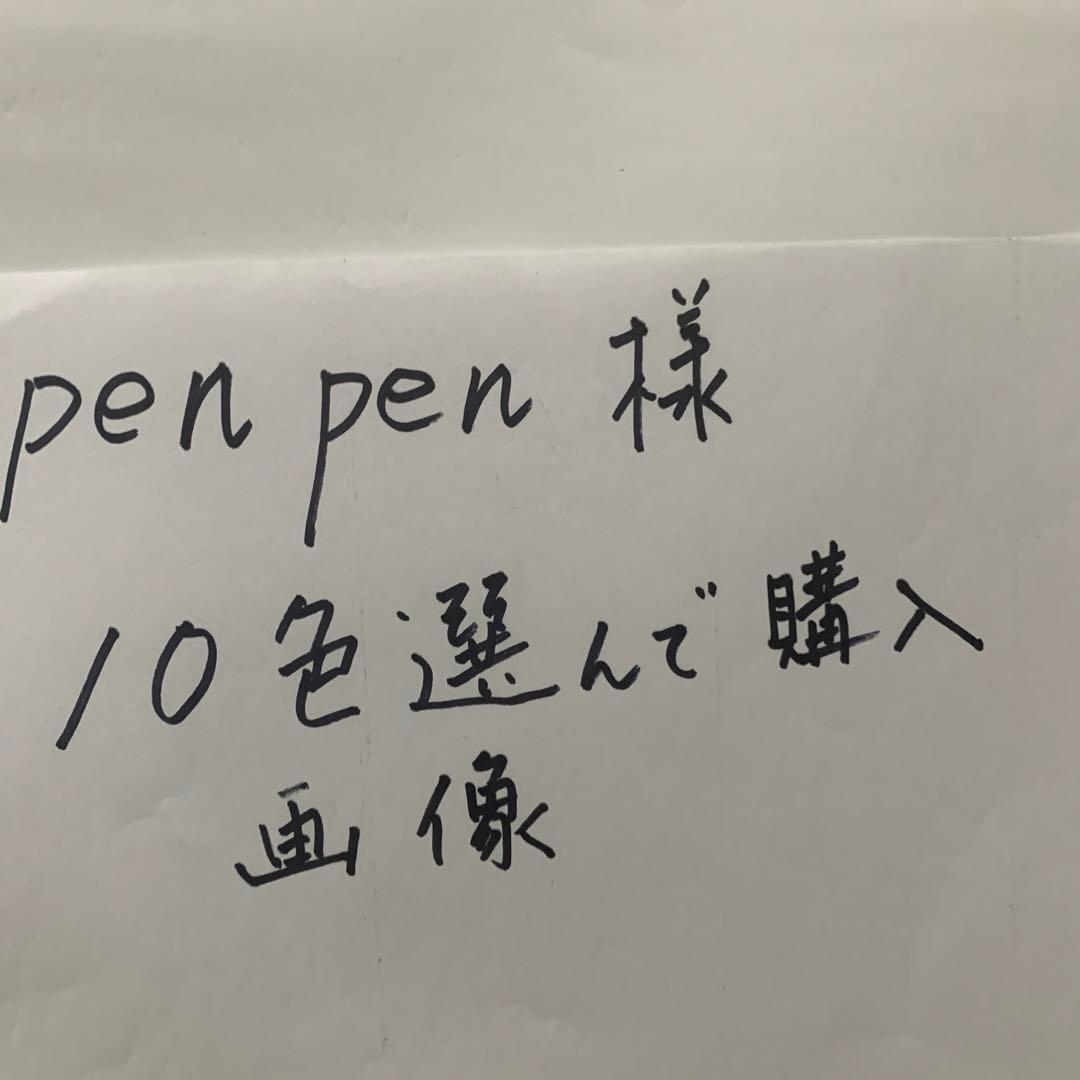 penpen様
10色選んで購入
画像